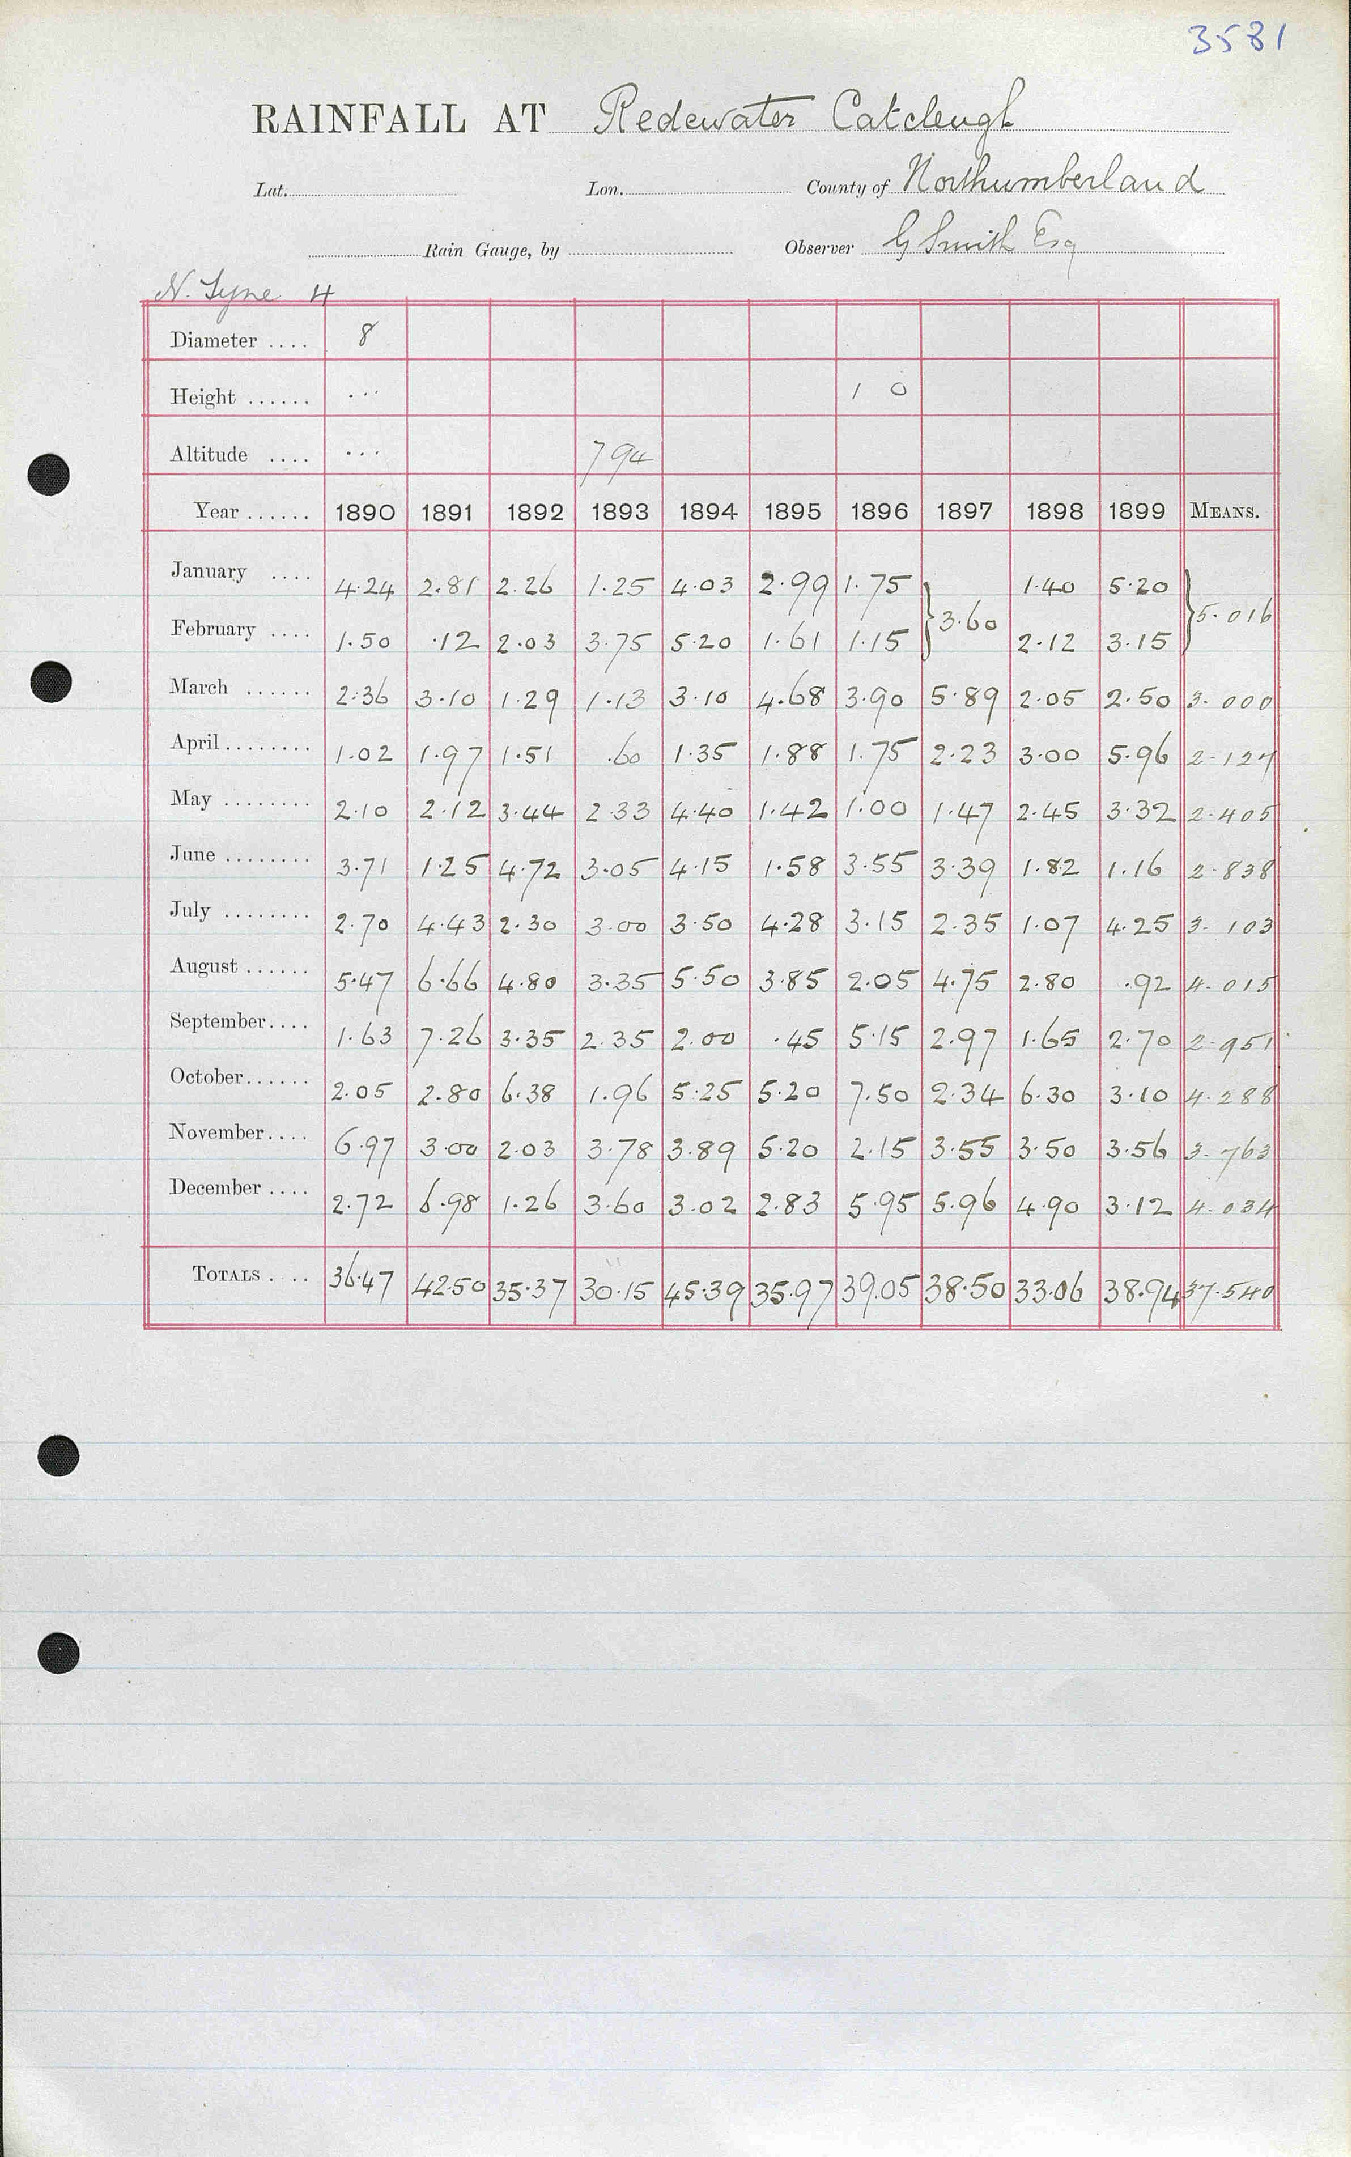 3581
RAINFALL AT Redewater Catcleugh
Lat. Lon. County of Northumberland
Rain Gauge, by Observer G Smith Esq
N. Tyne 4
Diameter .... 8
Height ...... ... 1 0
Altitude .... ... 794
Year ...... 1890 1891 1892 1893 1894 1895 1896 1897 1898 1899 MEANS.
January .... 4.24 2.81 2.26 1.25 4.03 2.99 1.75 } 3.60 1.40 5.20 } 5.016
February .... 1.50 .12 2.03 3.75 5.20 1.61 1.15 2.12 3.15
March ...... 2.36 3.10 1.29 1.13 3.10 4.68 3.90 5.89 2.05 2.50 3.000
April ........ 1.02 1.97 1.51 .60 1.35 1.88 1.75 2.23 3.00 5.96 2.127
May ........ 2.10 2.12 3.44 2.33 4.40 1.42 1.00 1.47 2.45 3.32 2.405
June ........ 3.71 1.25 4.72 3.05 4.15 1.58 3.55 3.39 1.82 1.16 2.838
July ........ 2.70 4.43 2.30 3.00 3.50 4.28 3.15 2.35 1.07 4.25 3.103
August ...... 5.47 6.66 4.80 3.35 5.50 3.85 2.05 4.75 2.80 .92 4.015
September.... 1.63 7.26 3.35 2.35 2.00 .45 5.15 2.97 1.65 2.70 2.951
October...... 2.05 2.80 6.38 1.96 5.25 5.20 7.50 2.34 6.30 3.10 4.288
November.... 6.97 3.00 2.03 3.78 3.89 5.20 2.15 3.55 3.50 3.56 3.763
December .... 2.72 6.98 1.26 3.60 3.02 2.83 5.95 5.96 4.90 3.12 4.034
TOTALS .... 36.47 42.50 35.37 30.15 45.39 35.97 39.05 38.50 33.06 38.94 37.540